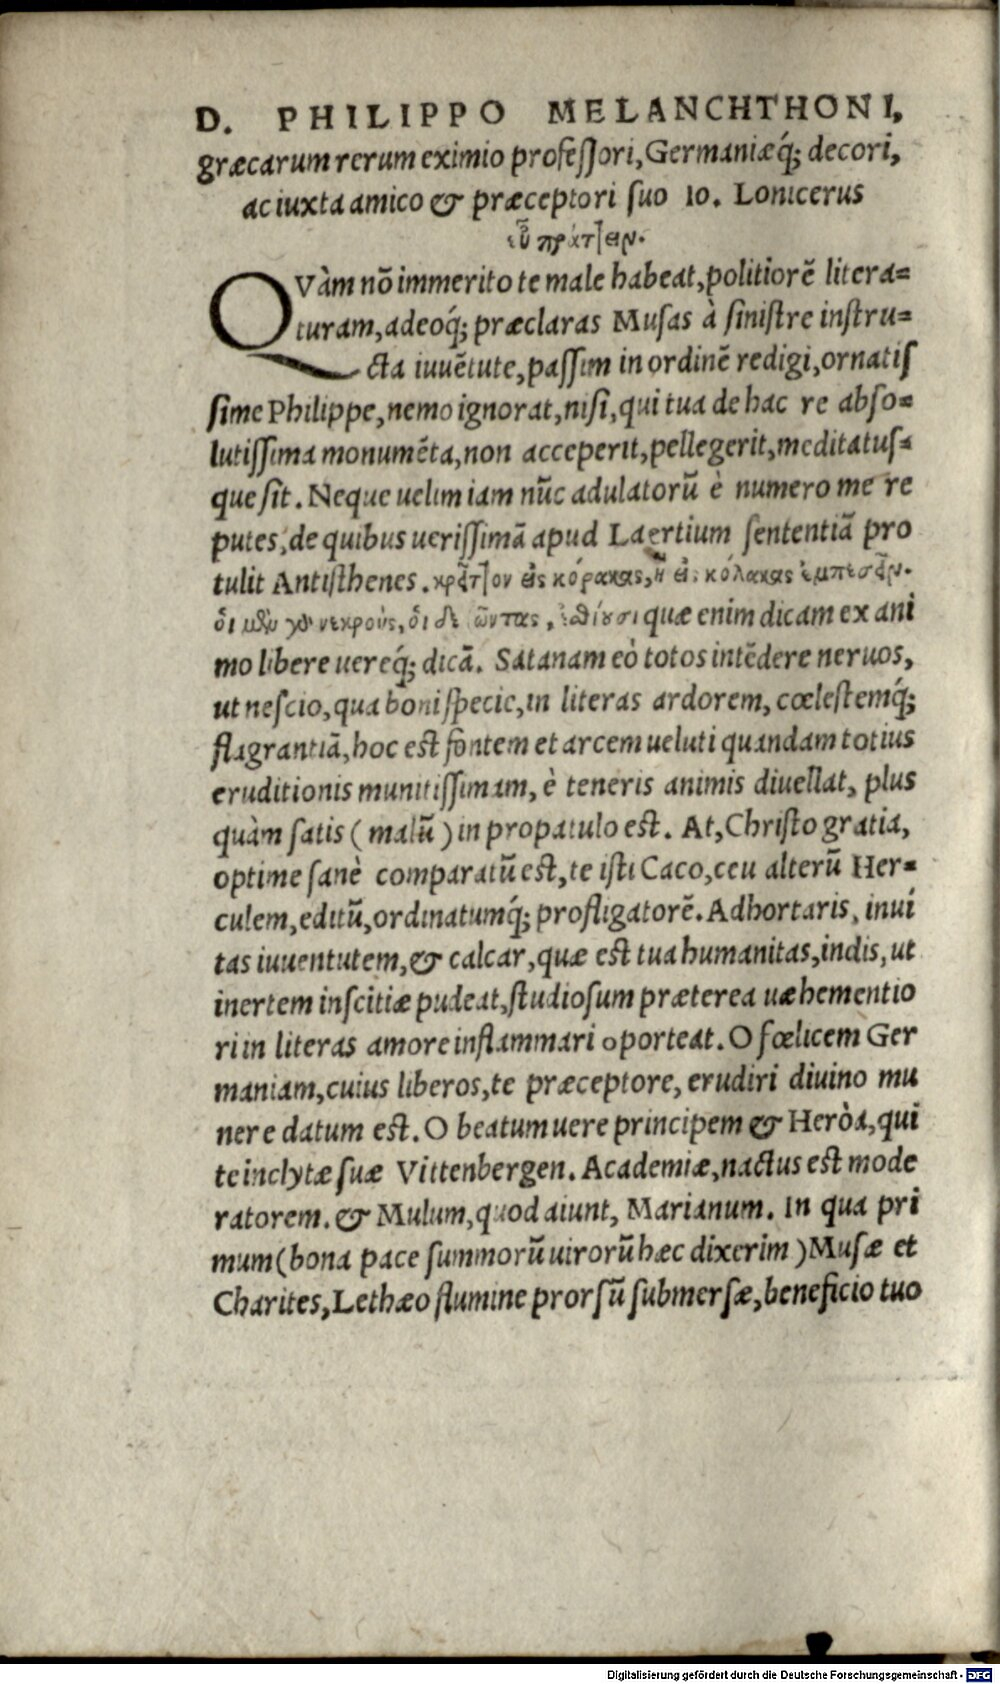 D. PHILIPPO MELANCHTHONI,
græcarum rerum eximio professori, Germaniæq́; decori,
ac iuxta amico & præceptori suo Io. Lonicerus
εὖ πράττειν.
QVàm nō immerito te male habeat, politiorē litera=
turam, adeoq́; præclaras Musas à sinistre instru=
cta iuuētute, passim in ordinē redigi, ornatis
sime Philippe, nemo ignorat, nisi, qui tua de hac re abso=
lutissima monumēta, non acceperit, pellegerit, meditatus=
que sit. Neque uelim iam nūc adulatorū è numero me re
putes, de quibus uerissimā apud Laertium sententiā pro
tulit Antisthenes. κρεῖττον εἰς κόρακας, ἢ εἰς κόλακας ἐμπεσεῖν.
ὅι μὲν γὰρ νεκρούς, ὅι δὲ ζῶντας, ἐσθίουσι quæ enim dicam ex ani
mo libere uereq́; dicā. Satanam eò totos intēdere neruos,
ut nescio, qua boni specie, in literas ardorem, cœlestemq́;
flagrantiā, hoc est fontem et arcem ueluti quandam totius
eruditionis munitissimam, è teneris animis diuellat, plus
quàm satis ( malū ) in propatulo est. At, Christo gratia,
optime sanè comparatū est, te isti Caco, ceu alterū Her=
culem, editū, ordinatumq́; profligatorē. Adhortaris, inui
tas iuuentutem, & calcar, quæ est tua humanitas, indis, ut
inertem inscitiæ pudeat, studiosum præterea uæhementio
ri in literas amore inflammari oporteat. O fœlicem Ger
maniam, cuius liberos, te præceptore, erudiri diuino mu
nere datum est. O beatum uere principem & Heròa, qui
te inclytæ suæ Vittenbergen. Academiæ, nactus est mode
ratorem. & Mulum, quod aiunt, Marianum. In qua pri
mum (bona pace summorū uirorū hæc dixerim ) Musæ et
Charites, Lethæo flumine prorsū submersæ, beneficio tuo
Digitalisierung gefördert durch die Deutsche Forschungsgemeinschaft - DFG